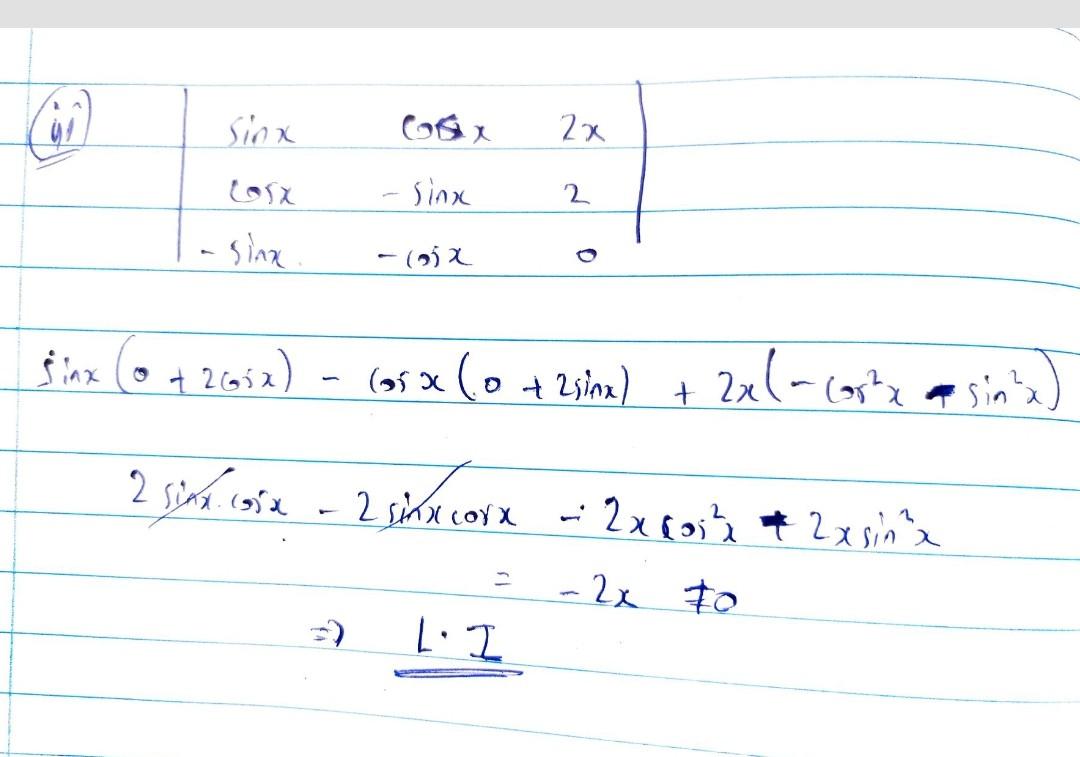 (iii) | sinx cosx 2x |
| cosx - sinx 2 |
| - sinx - cosx 0 |
sinx (0 + 2cosx) - cosx (0 + 2sinx) + 2x(- cos²x - sin²x)
2 sinx.cosx - 2 sinx cosx - 2x cos²x - 2x sin²x
= - 2x ≠ 0
⇒ L.I